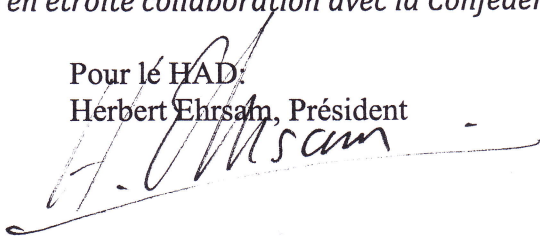 en étroite collaboration avec la Confédér
Pour le HAD:
Herbert Ehrsam, Président
H. Ehrsam